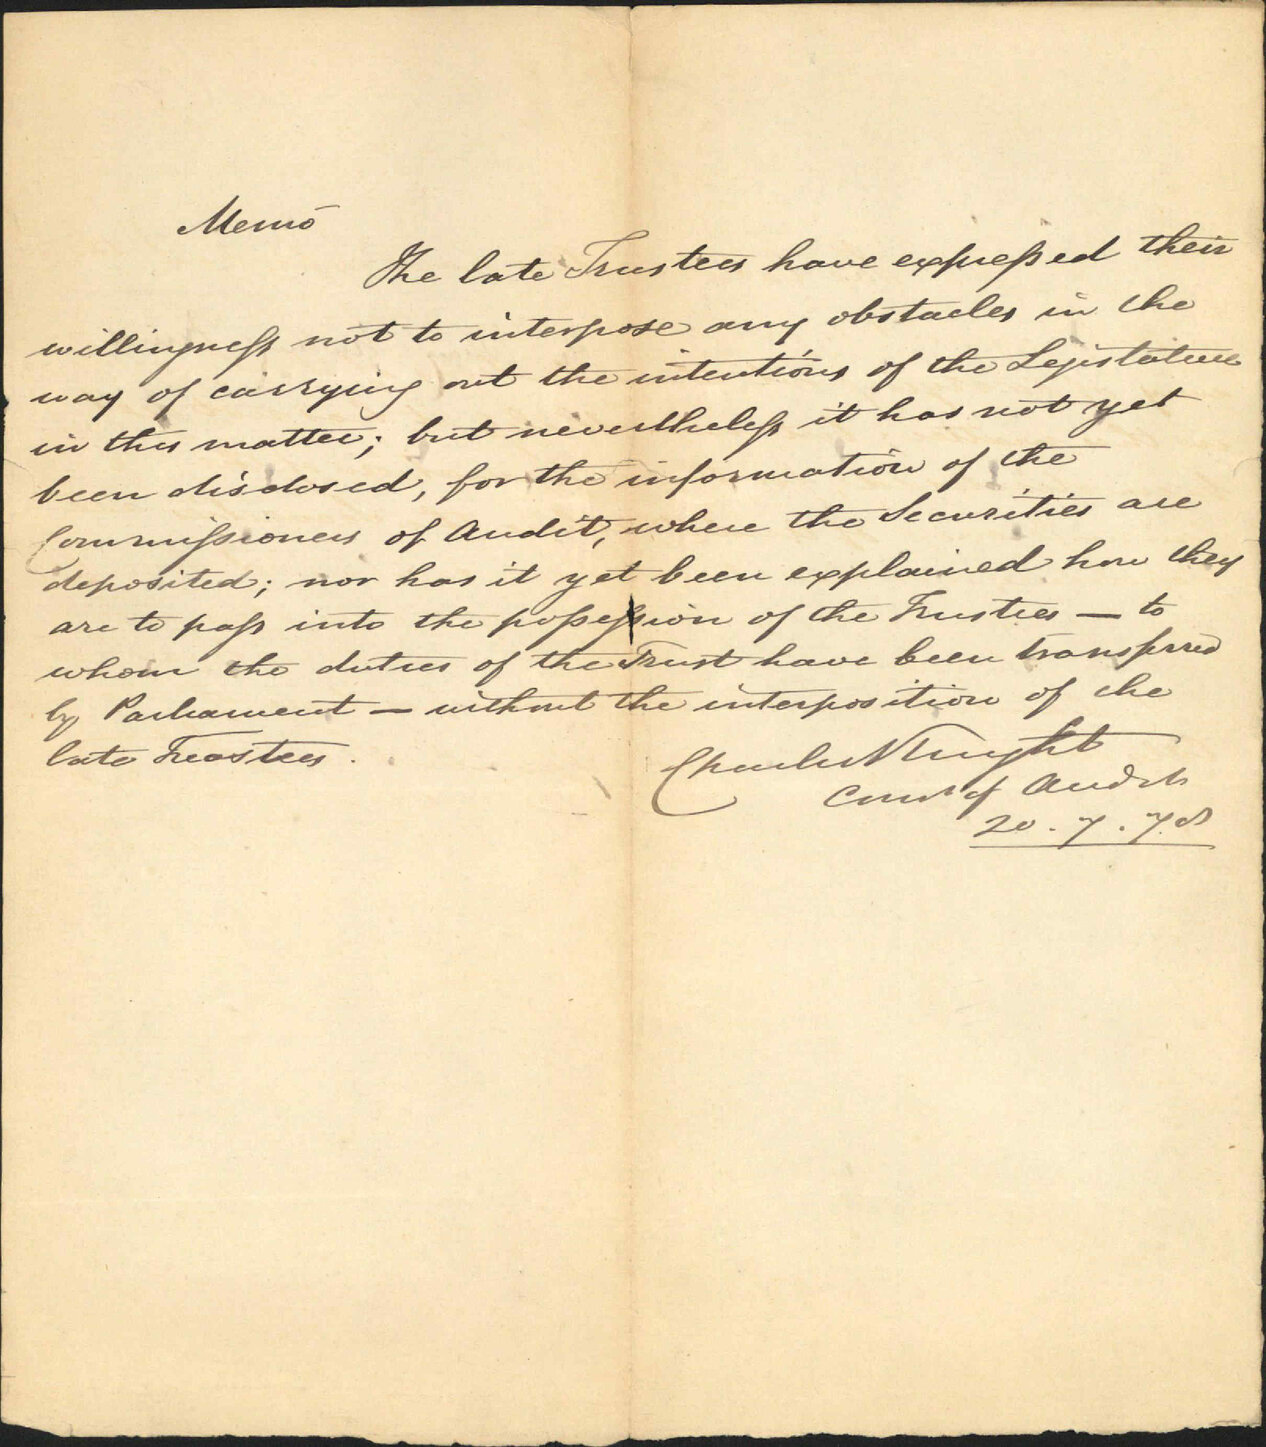 Memo
The late Trustees have expressed their
willingness not to interpose any obstacles in the
way of carrying out the intentions of the Legislature
in this matter; but nevertheless it has not yet
been disclosed, for the information of the
Commissioners of Audit, where the Securities are
deposited; nor has it yet been explained how they
are to pass into the possession of the Trustees — to
whom the duties of the Trust have been transferred
by Parliament — without the interposition of the
late Trustees.
Charles Knight
Comr of Audit
20.7.78